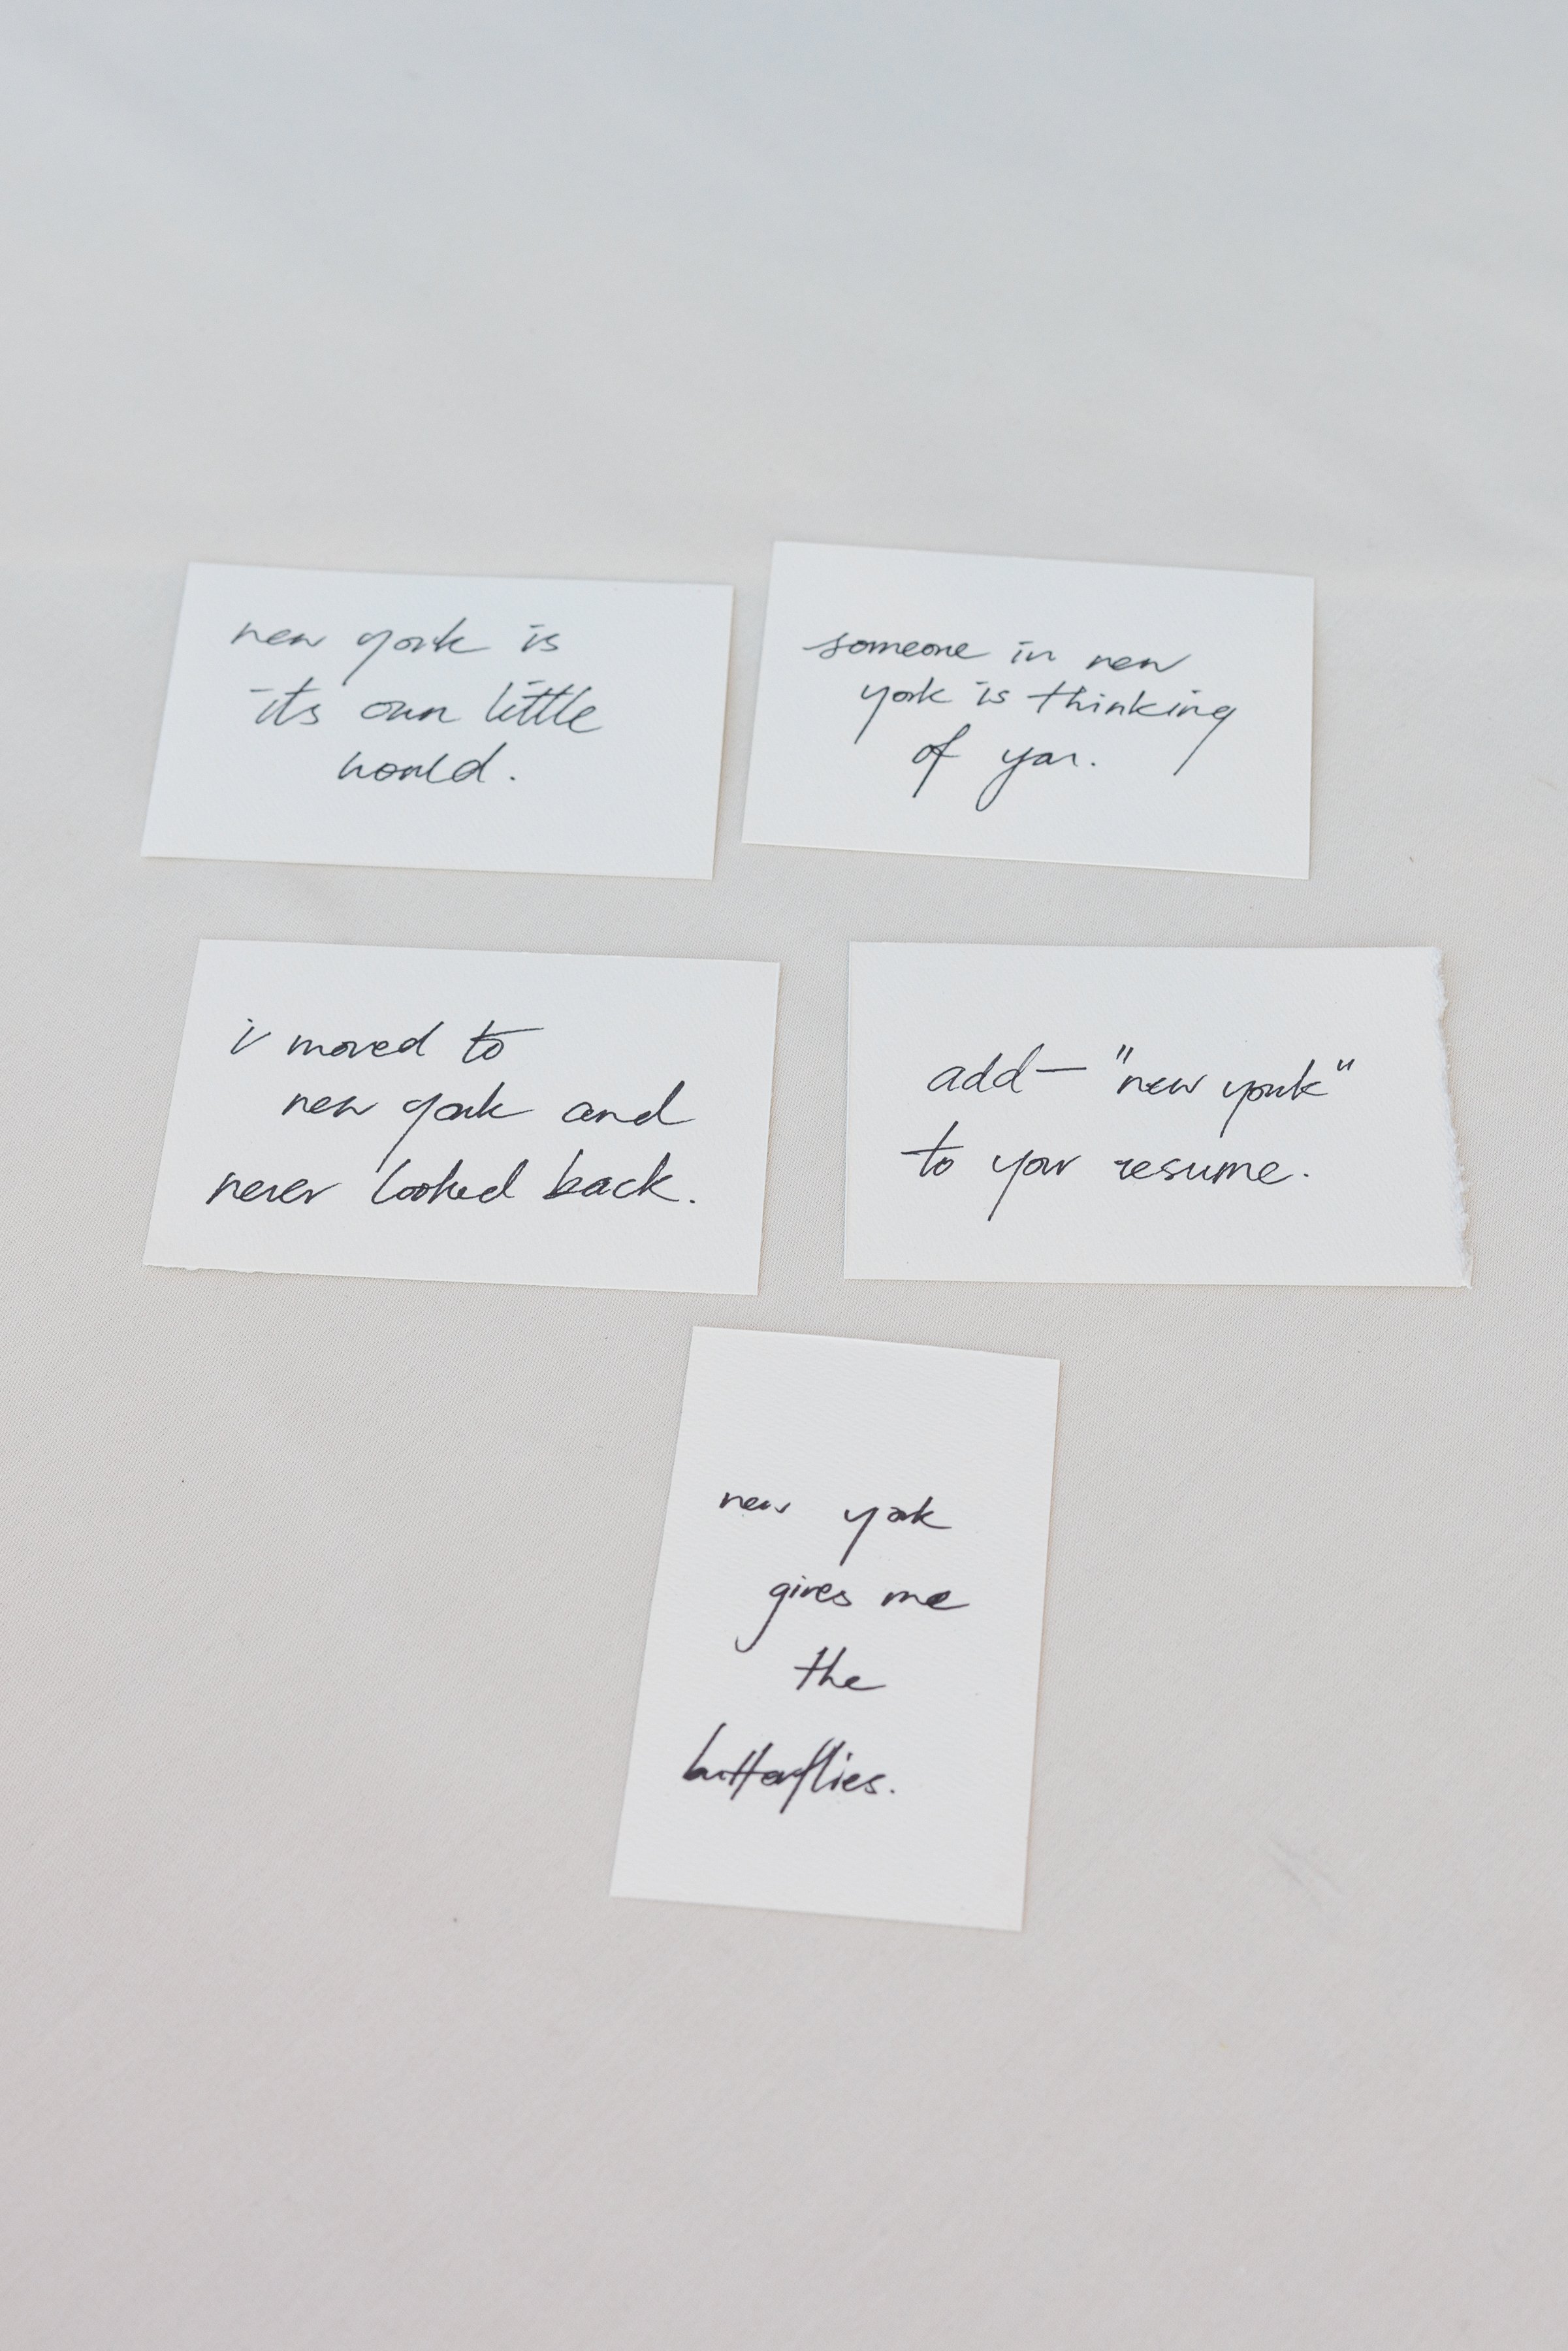 new york is
its own little
world.
someone in new
york is thinking
of you.
i moved to
new york and
never looked back.
add— "new york"
to your resume.
new york
gives me
the
butterflies.